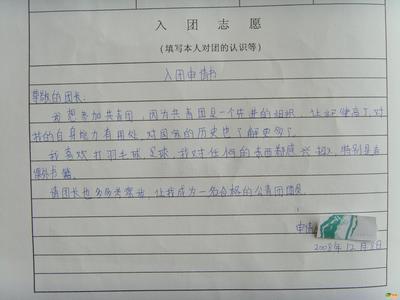 入团志愿
(填写本人对团的认识等)
入团申请书
尊敬的团长:
我想参加共青团,因为共青团是一个先进的组织,让
对我的自身能力有用处,对国家的历史也了解更多了。
我喜欢打羽毛球,足球,我对任何的东西都感兴趣,特别是看
课外书籍。
请团长也多多考察我,让我成为一名合格的公青团团员。
申请
2008年12月8日